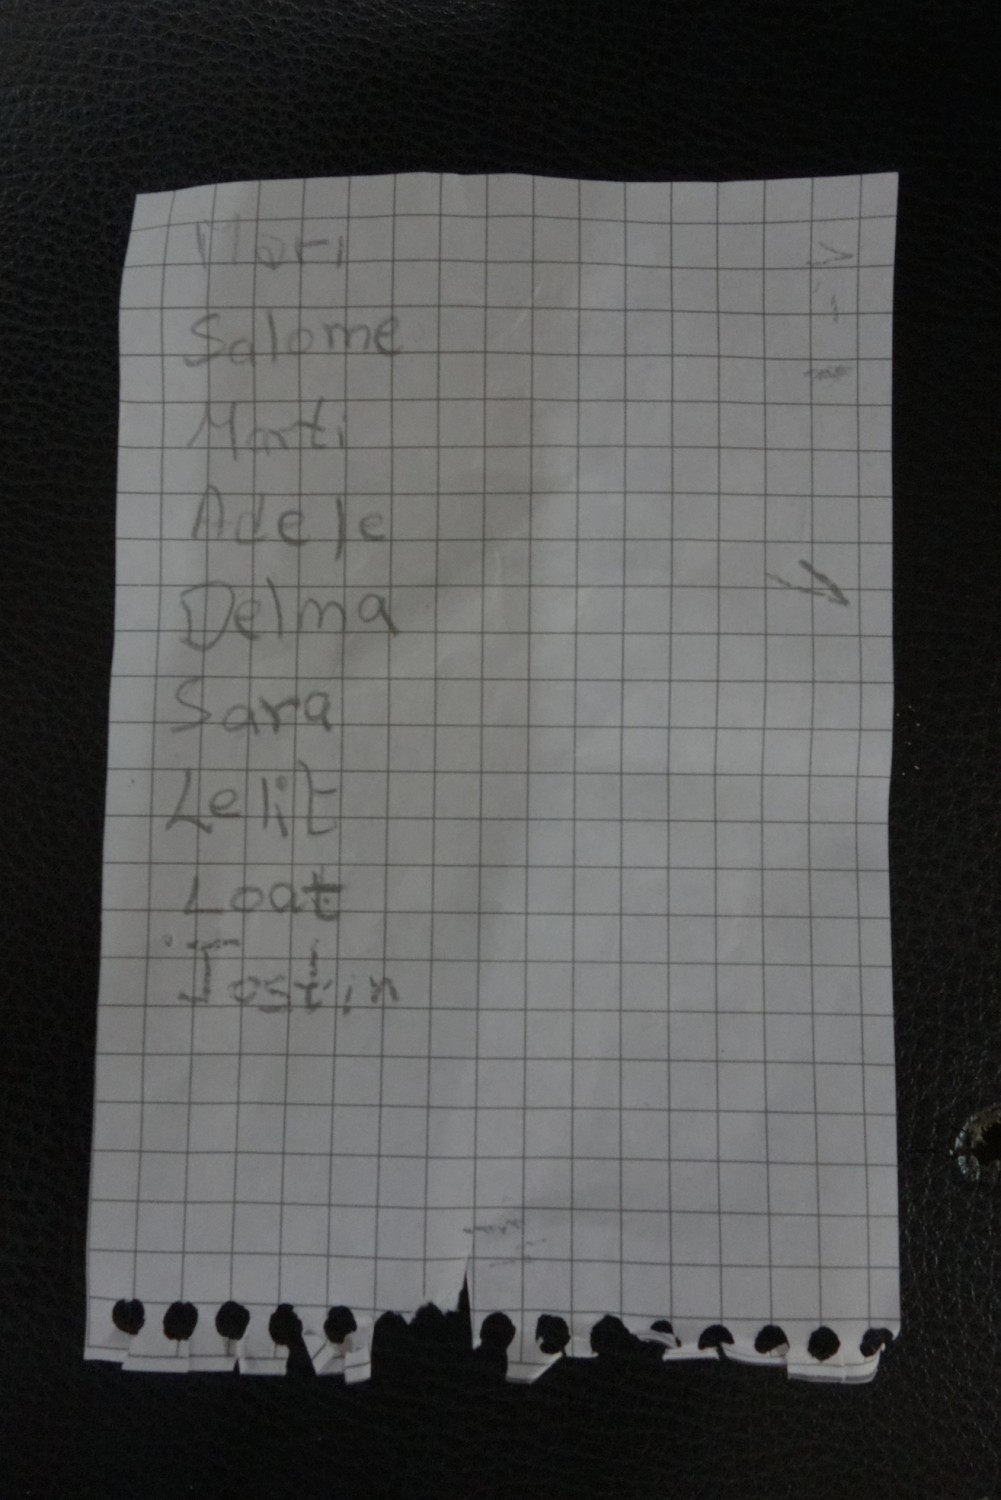 Mari
Salome
Marti
Adele
Delma
Sara
Lelit
Loat
Jostin